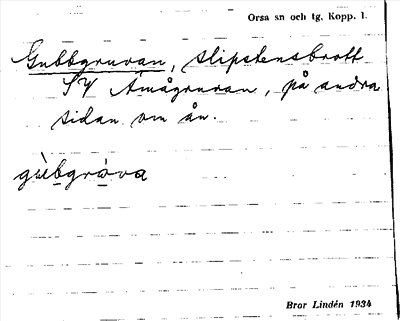 Orsa sn och tg, Kopp. l.
Gubbgruvan, slipstensbrott
SV Åmågruvan, på andra
sidan om ån.
gùbgrɷva
Bror Lindén 1934